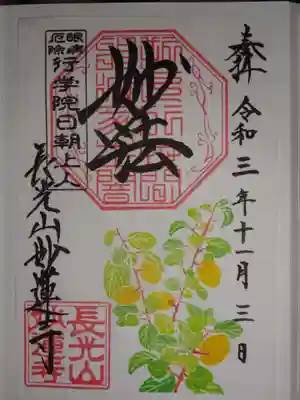 奉拝 令和三年十一月三日
妙法
眼病
厄除
行学院日朝上人
長光山妙蓮寺
長光山
妙蓮寺